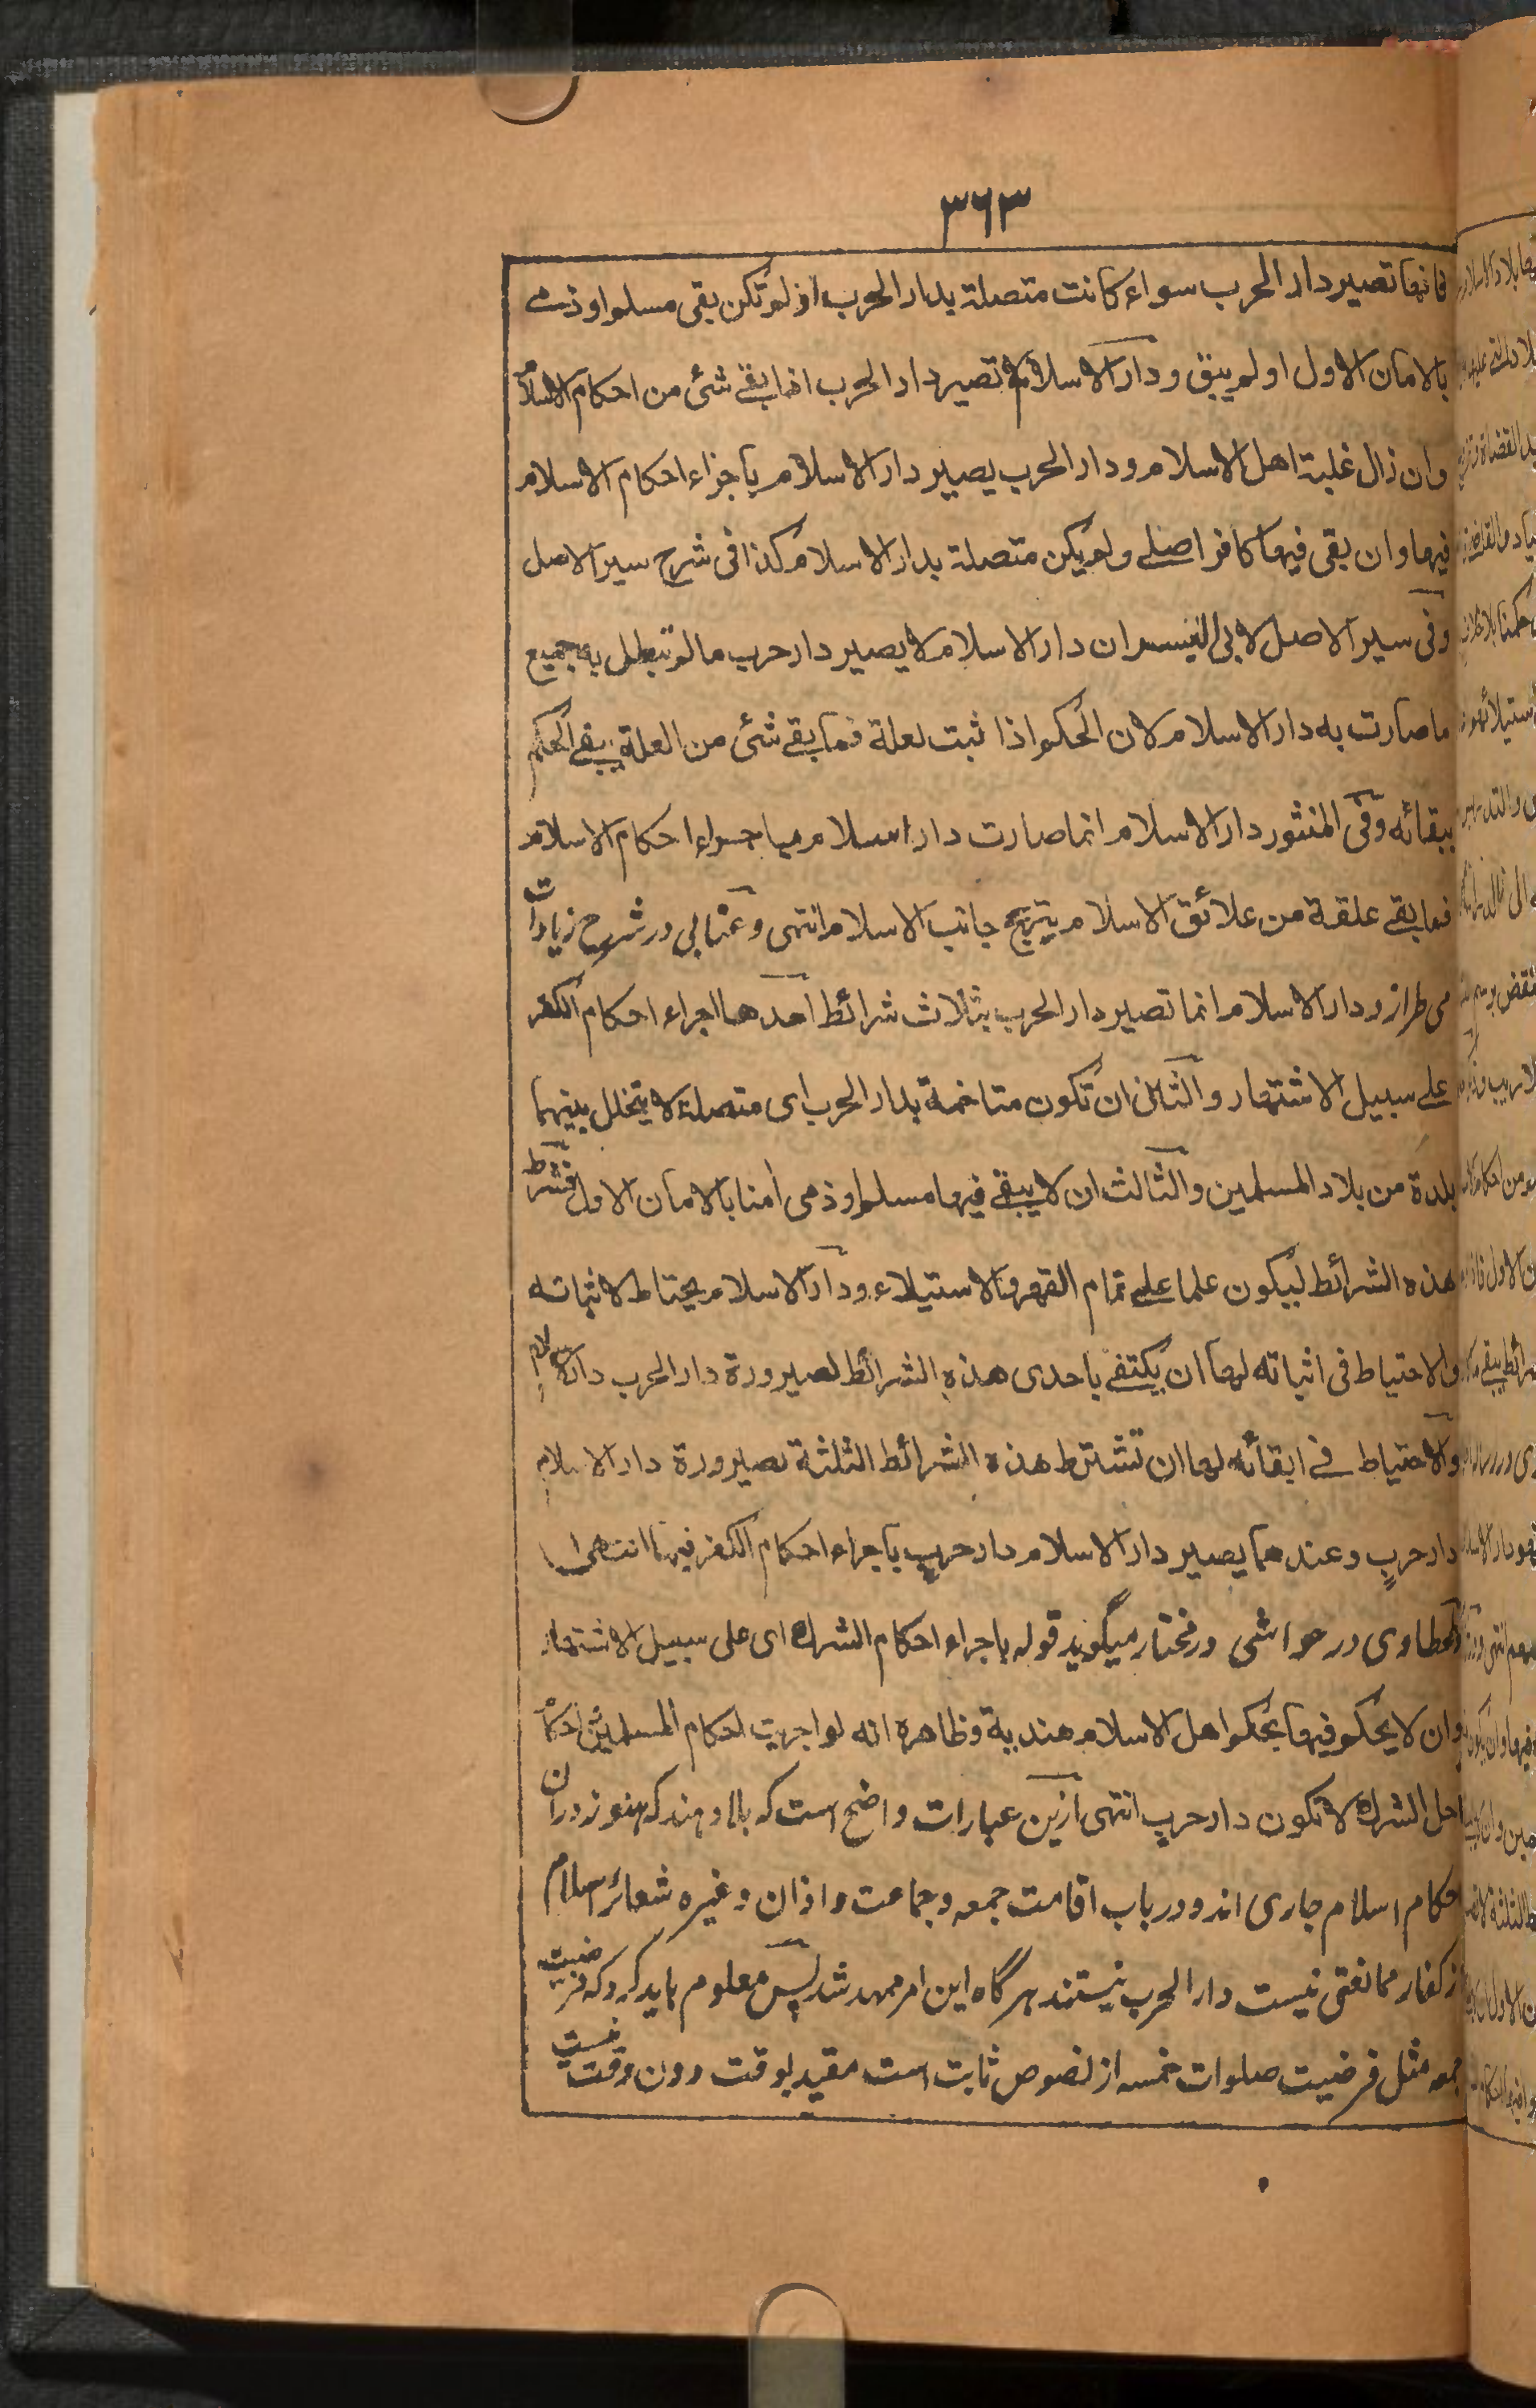 ٣٦٣
فانها تصیر دار الحرب سواء کانت متصلة بدار الحرب اذ لم تکن بقی مسلم او ذمی
بالامان الاول او لم یبق و دار الاسلام لا تصیر دار الحرب اذا بقے شئ من احکام الاسلام
وان زال غلبة اهل الاسلام و دار الحرب یصیر دار الاسلام باجراء احکام الاسلام
فیها وان بقی فیها کافر اصلے ولم یکن متصلة بدار الاسلام کذا فی شرح سیر الاصل
وفی سیر الاصل لابی الیسر ان دار الاسلام لا یصیر دار حرب ما لم تبطل به جمیع
ما صارت به دار الاسلام لان الحکم اذا ثبت لعلة فما بقے شئ من العلة یبقے الحکم
ببقائه وفی المنثور دار الاسلام انما صارت دار اسلام باجراء احکام الاسلام
فما بقے علقة من علائق الاسلام یترجح جانب الاسلام انتهی و عتابی در شرح زیادات
می طراز و دار الاسلام انما تصیر دار الحرب بثلاث شرائط احدها اجراء احکام الکفر
علے سبیل الاشتهار والثانی ان تکون متاخمة بدار الحرب ای متصلة لا یتخلل بینهما
بلدة من بلاد المسلمین والثالث ان لا یبقے فیها مسلم او ذمی اٰمنا بالامان الاول فشرط
هذه الشرائط لیکون علما علے تمام القهر والاستیلاء و دار الاسلام یحتاط لاثباته
والاحتیاط فی اثباته لها ان یکتفے باحدی هذه الشرائط لصیرورة دار الحرب دار الاسلام
والاحتیاط فے ابقائه لها ان تشترط هذه الشرائط الثلثة لصیرورة دار الاسلام
دار حربٍ وعندهما یصیر دار الاسلام دار حربٍ باجراء احکام الکفر فیها انتهی
طحطاوی در حواشی در مختار میگوید قوله باجراء احکام الشرک ای علی سبیل الاشتهار
وان لا یحکم فیها بحکم اهل الاسلام هندیة وظاهره انه لو اجریت احکام المسلمین واحکام
اهل الشرک لا تکون دار حربٍ انتهی ازین عبارات واضح است که بلاد هند که هنوز در آن
احکام اسلام جاری اند و در باب اقامت جمعه و جماعت و اذان و غیره شعائر اسلام
از کفار ممانعتی نیست دار الحرب نیستند هرگاه این امر ممهد شد پس معلوم باید کرد که فرضیت
جمعه مثل فرضیت صلوات خمسه از نصوص ثابت است مقید بوقت دون وقت نیست